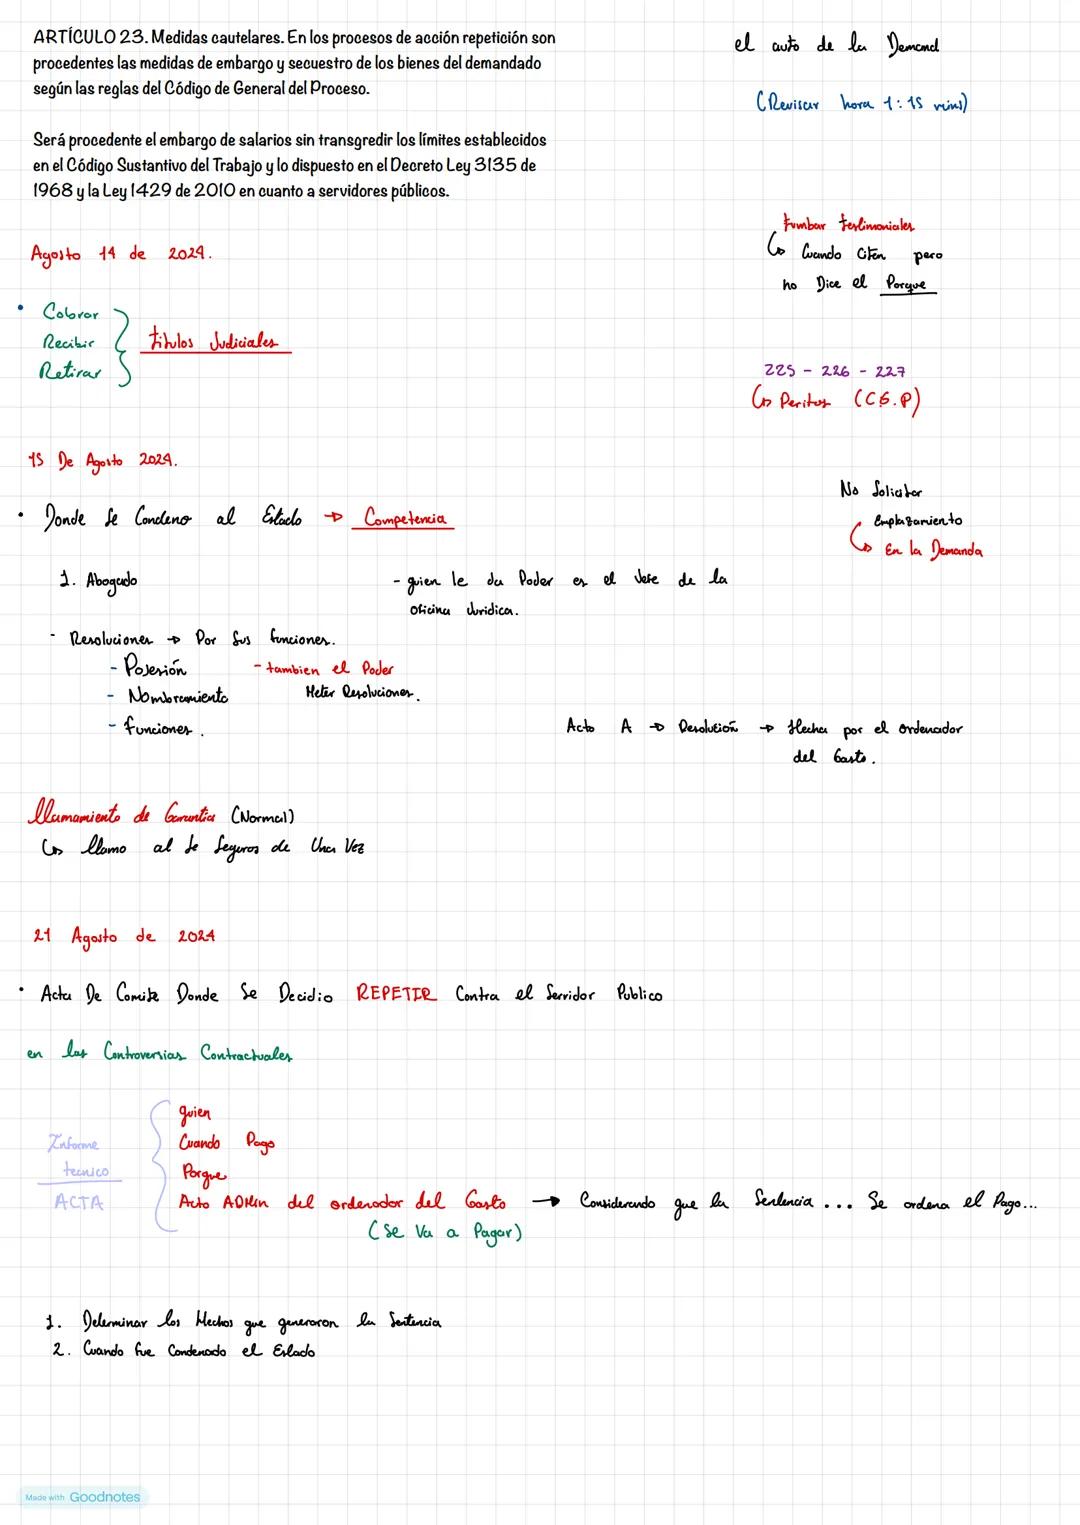 ARTÍCULO 23. Medidas cautelares. En los procesos de acción repetición son
procedentes las medidas de embargo y secuestro de los bienes del demandado
según las reglas del Código de General del Proceso.
Será procedente el embargo de salarios sin transgredir los límites establecidos
en el Código Sustantivo del Trabajo y lo dispuesto en el Decreto Ley 3135 de
1968 y la Ley 1429 de 2010 en cuanto a servidores públicos.
el auto de la Demand
(Revisar hora 1:15 mins)
tumbar testimoniales
↳ Cuando Citen pero
no Dice el Porque
Agosto 14 de 2024.
• Cobrar
Recibir
Retirar
titulos Judiciales
225 - 226 - 227
↳ Peritos (C.G.P)
15 De Agosto 2024.
No Solicitar
Emplazamiento
↳ En la Demanda
• Donde Se Condeno al Estado → Competencia
1. Abogado
- quien le da Poder es el Jefe de la
oficina Juridica.
- Resoluciones → Por Sus funciones.
- Posesión
- tambien el Poder
- Nombramiento
Meter Resoluciones.
- funciones.
Acto A → Resolución → Hecha por el ordenador
del Gasto.
llamamiento de Garantia (Normal)
↳ llamo al de Seguros de Una Vez
21 Agosto de 2024
• Acta De Comite Donde Se Decidio REPETIR Contra el Servidor Publico
en las Controversias Contractuales
Informe
tecnico
ACTA
quien
Cuando Pago
Porque
Acto ADMin del ordenador del Gasto → Considerando que la Sentencia ... Se ordena el Pago...
(Se Va a Pagar)
1. Determinar los Hechos que generaron la Sentencia
2. Cuando fue Condenado el Estado
Made with Goodnotes